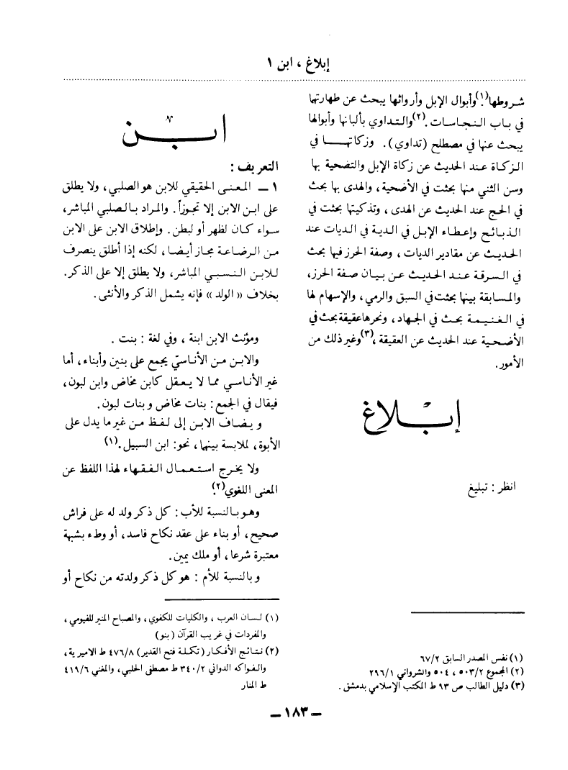 إبلاغ ، ابن ١
شروطها.(١) وأبوال الإبل وأرواثها يبحث عن طهارتها
في باب النجاسات.(٢) والتداوي بألبانها وأبوالها
يبحث عنها في مصطلح (تداوي). وزكاتها في
الزكاة عند الحديث عن زكاة الإبل والتضحية بها
وسن الثني منها بحثت في الأضحية، والهدى بها بحث
في الحج عند الحديث عن الهدى، وتذكيتها بحثت في
الذبائح وإعطاء الإبل في الدية في الديات عند
الحديث عن مقادير الديات، وصفة الحرز فيها بحث
في السرقة عند الحديث عن بيان صفة الحرز،
والمسابقة بينها بحثت في السبق والرمي، والإسهام لها
في الغنيمة بحث في الجهاد، ونحرها عقيقة بحث في
الأضحية عند الحديث عن العقيقة،(٣) وغير ذلك من
الأمور.
إبلاغ
انظر : تبليغ
(١) نفس المصدر السابق ٦٧/٢
(٢) المجموع ٥٠٣/٢ ، ٥٠٤ والشرواني ٢٩٦/١
(٣) دليل الطالب ص ٩٣ ط المكتب الإسلامي بدمشق .
ابن
التعريف :
١ ـ المعنى الحقيقي للابن هو الصلبي، ولا يطلق
على ابن الابن إلا تجوزاً. والمراد بالصلبي المباشر،
سواء كان لظهر أو لبطن. وإطلاق الابن على الابن
من الرضاعة مجاز أيضا، لكنه إذا أطلق ينصرف
للابن النسبي المباشر، ولا يطلق إلا على الذكر.
بخلاف « الولد » فإنه يشمل الذكر والأنثى.
ومؤنث الابن ابنة ، وفي لغة : بنت .
والابن من الأناسيّ يجمع على بنين وأبناء، أما
غير الأناسي مما لا يعقل كابن مخاض وابن لبون،
فيقال في الجمع : بنات مخاض وبنات لبون.
ويضاف الابن إلى لفظ من غير ما يدل على
الأبوة، لملابسة بينها، نحو: ابن السبيل.(١)
ولا يخرج استعمال الفقهاء لهذا اللفظ عن
المعنى اللغوي.(٢)
وهو بالنسبة للأب : كل ذكر ولد له على فراش
صحيح، أو بناء على عقد نكاح فاسد، أو وطء بشبهة
معتبرة شرعا، أو ملك يمين.
وبالنسبة للأم : هو كل ذكر ولدته من نكاح أو
(١) لسان العرب ، والكليات للكفوي، والمصباح المنير للفيومي ،
والمفردات في غريب القرآن (بنو)
(٢) نتائج الأفكار (تكملة فتح القدير) ٤٧٦/٨ ط الاميرية ،
والفواكه الدواني ٣٤٠/٢ ط مصطفى الحلبي، والمغني ٤١٩/٦
ط المنار
ـ ١٨٣ ـ